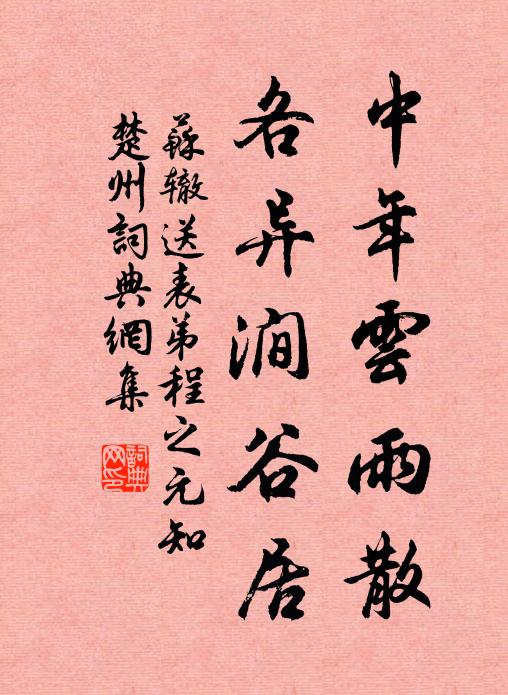 中年雲雨散
各异澗谷居
蘇辙送表弟程之元知
楚州詞典網集
詞典网印